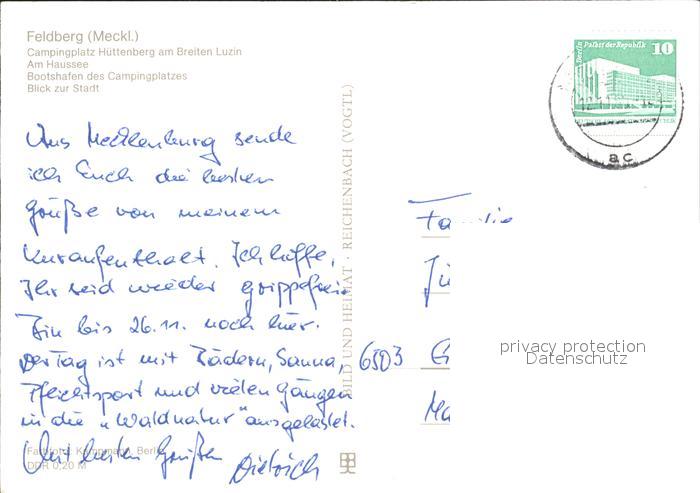 Feldberg (Meckl.)
Campingplatz Hüttenberg am Breiten Luzin
Am Haussee
Bootshafen des Campingplatzes
Blick zur Stadt
Aus Mecklenburg sende
ich Euch die besten
Grüße von meinem
Kuraufenthalt. Ich hoffe,
Ihr seid wieder grippefrei.
Bin bis 26.11. noch hier.
Der Tag ist mit Bädern, Sauna,
Pflichtsport und vielen Gängen
in die „Waldnatur" ausgelastet.
Mit besten Grüßen Dietrich
Farbfoto: Kampmann, Berlin
DDR 0,20 M
BILD UND HEIMAT · REICHENBACH (VOGTL)
Berlin Palast der Republik 10
ac
Fa
Jü
6503 G
Ma
privacy protection
Datenschutz